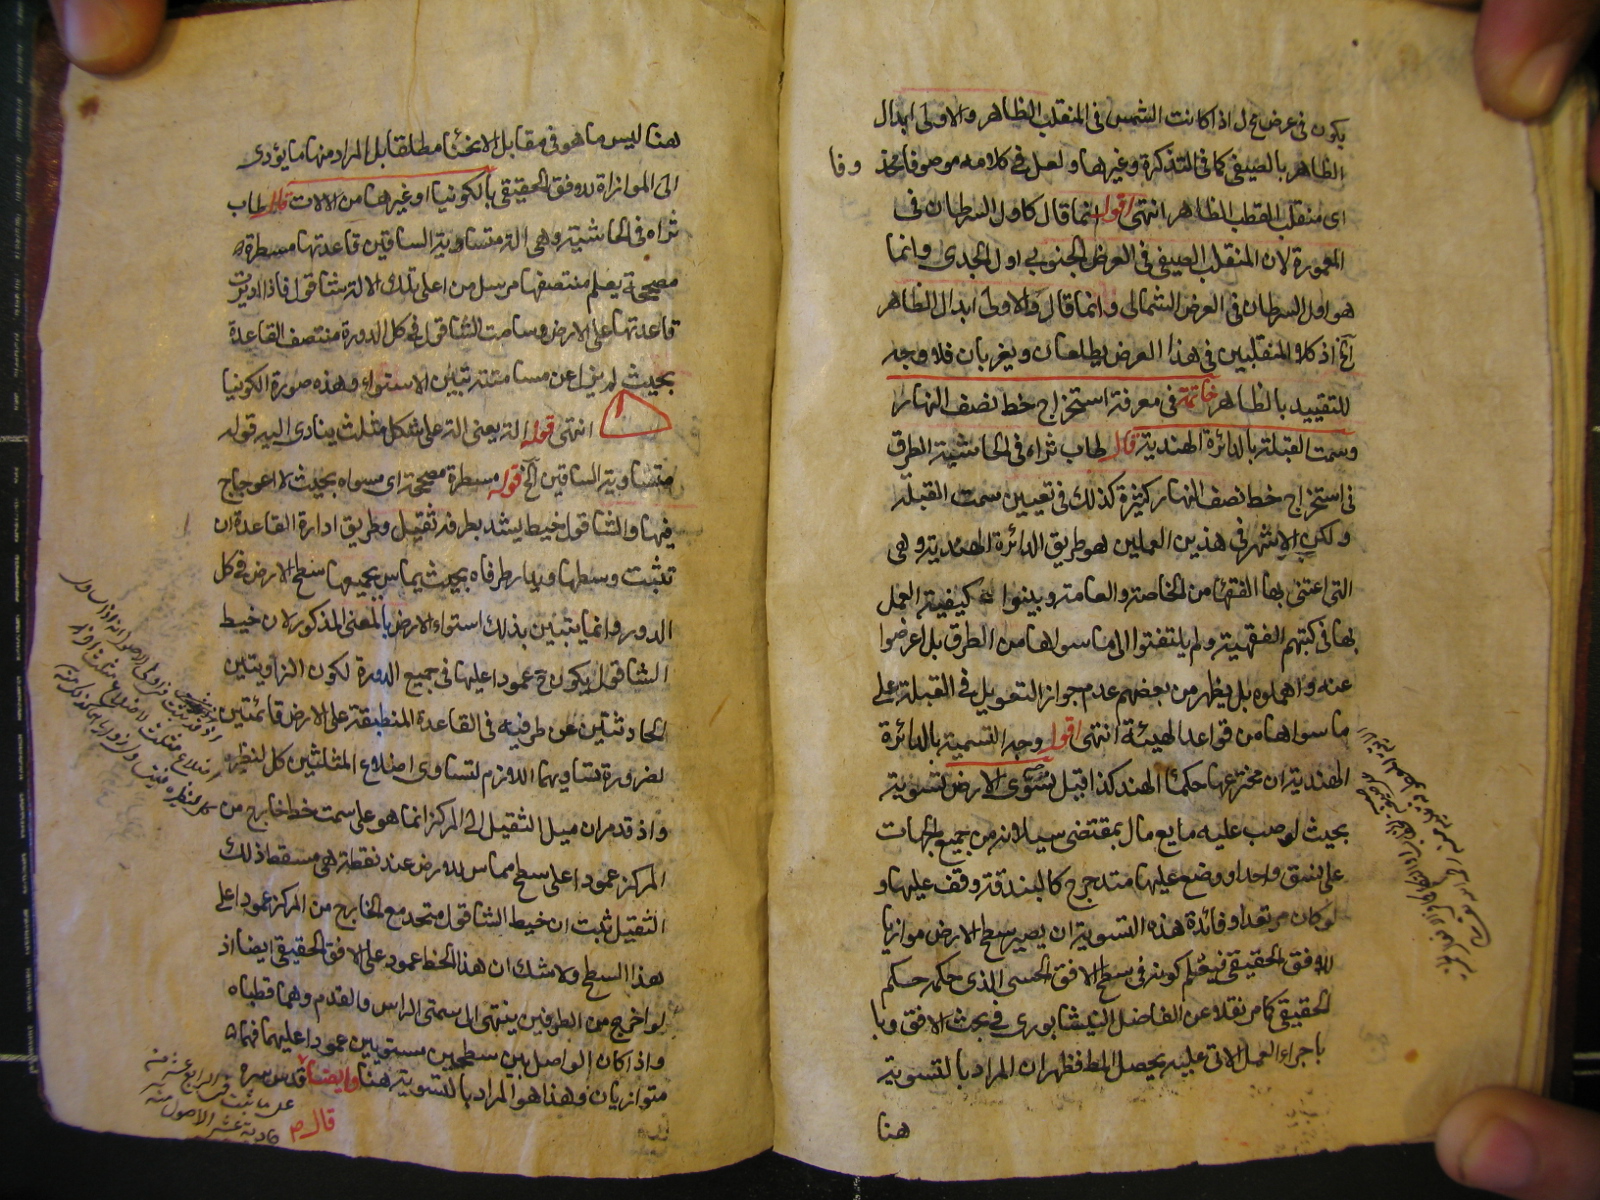 يكون في عرض محل اذا كانت الشمس في المنقلب الظاهر والاولى ابدال
الظاهر بالصيفي كما في التذكرة وغيرها ولعل في كلامه موصوفا محذوفا
اى منقلب القطب الظاهر انتهى اقول انما قال كاول السرطان في
المعمورة لان المنقلب الصيفي في العرض الجنوبي اول الجدى وانما
هو اول السرطان في العرض الشمالى وانما قال والاولى ابدال الظاهر
آلخ اذ كلا المنقلبين في هذا العرض يطلعان ويغربان فلا وجه
للتقييد بالظاهر خاتمة في معرفة استخراج خط نصف النهار
وسمت القبلة بالدائرة الهندية قال طاب ثراه في الحاشية الطرق
في استخراج خط نصف النهار كثيرة كذلك في تعيين سمت القبلة
ولكن الاشهر في هذين العملين هو طريق الدائرة الهندية وهى
التى اعتنى بها الفقهاء من الخاصة والعامة وبينوا كيفية العمل
بها في كتبهم الفقهية ولم يلتفتوا الى ما سواها من الطرق بل اعرضوا
عنه واهملوه بل يظهر من بعضهم عدم جواز التعويل في القبلة على
ما سواها من قواعد الهيئة انتهى اقول وجه التسمية بالدائرة
الهندية ان مخترعها حكماء الهند كذا قيل تسوى الارض تسوية
بحيث لو صب عليه مايع مال بمقتضى سيلانه من جميع الجهات
على نسق واحد او وضع عليها متدحرج كالبندقة وقف عليها و
لو كان مرتعدا وفائدة هذه التسوية ان يصير سطح الارض موازيا
للافق الحقيقي فيعلم كونه في سطح الافق الحسى الذى حكمه حكم
الحقيقي كما مر نقلا عن الفاضل النيشابورى في بحث الافق وبا
باجراء العمل الاتى عليه يحصل المط فظهر ان المراد بالتسوية
هنا
هنا ليس ما هو في مقابل الانحناء مطلقا بل المراد منها ما يؤدى
الى الموازاة للافق الحقيقي بالكونيا او غيرها من الالات قال طاب
ثراه في الحاشية وهى الة متساوية الساقين قاعدتها مسطرة
مصححة يعلم منتصفها مرسل من اعلى تلك الالة شاقول فاذا اديرت
قاعدتها على الارض وسامت الشاقول في كل الدورة منتصف القاعدة
بحيث لم يزل عن مسامتته تبين الاستواء وهذه صورة الكونيا
انتهى قوله الة يعنى الة على شكل مثلث ينادى اليه قوله
متساوية الساقين آلخ قوله مسطرة مصححة اى مسواه بحيث لا اعوجاج
فيها والشاقول خيط يشد بطرفه ثقيل وطريق ادارة القاعدة ان
تثبت وسطها ويدار طرفاه بحيث يماس بجميعها سطح الارض في كل
الدور وانما يتبين بذلك استواء الارض بالمعنى المذكور لان خيط
الشاقول يكون ح عمودا عليها في جميع الدورة لكون الزاويتين
الحادثتين عن طرفيه في القاعدة المنطبقة على الارض قائمتين
لضرورة تساويهما اللازم لتساوى اضلاع المثلثين كل لنظيره
واذ قد مر ان ميل الثقيل الى المركز انما هو على سمت خط خارج من
المركز عمودا على سطح مماس للارض عند نقطة هى مسقط ذلك
الثقيل ثبت ان خيط الشاقول متحد مع الخارج من المركز عمودا على
هذا السطح ولا شك ان هذا الخط عمود على الافق الحقيقي ايضا اذ
لو اخرج من الطرفين ينتهى الى سمتى الراس والقدم وهما قطباه
واذا كان الواصل بين سطحين مستويين عمودا عليهما فهما
متوازيان وهذا هو المراد بالتسوية هنا وايضا قدس سره
قال م